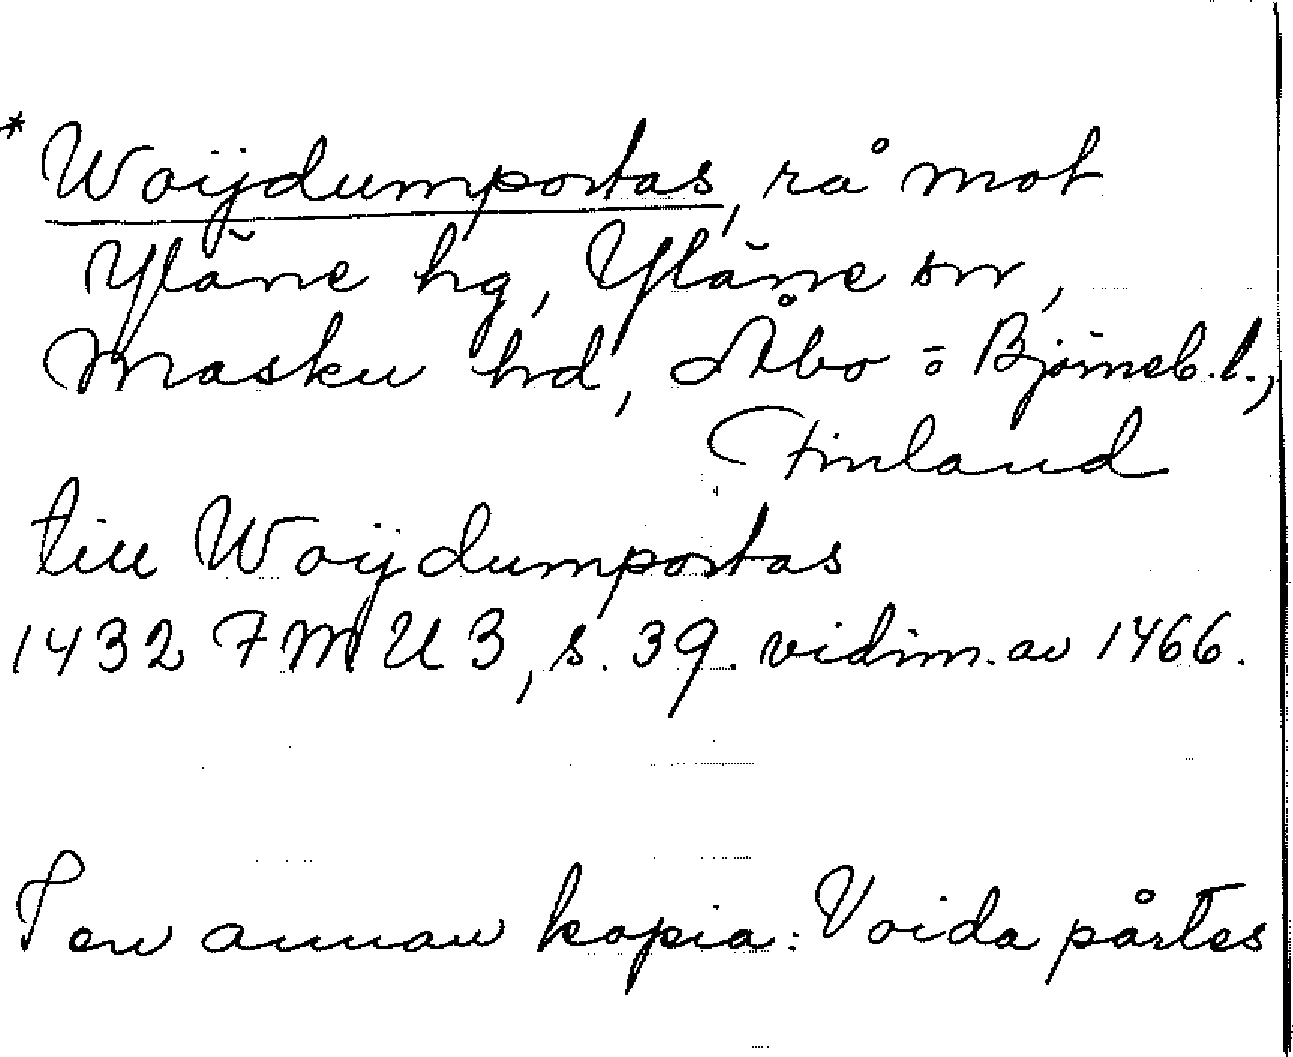 * Woijdumportas, rå mot
Yläne hg, Yläne sn,
Masku hd, Åbo o Björneb. l.,
Finland
till Woijdumportas
1432 FMU 3, s. 39. vidim. av 1466.
I en annan kopia: Voida pårtes